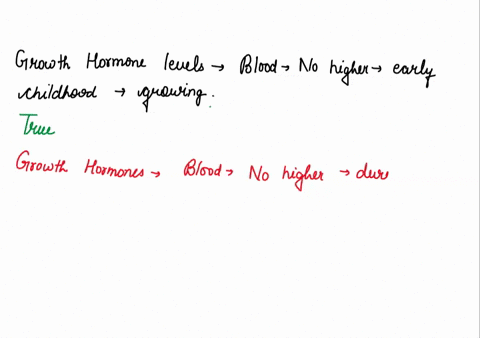 Growth Hormone levels → Blood → No higher → early
childhood → growing.
True
Growth Hormones → Blood → No higher → dure